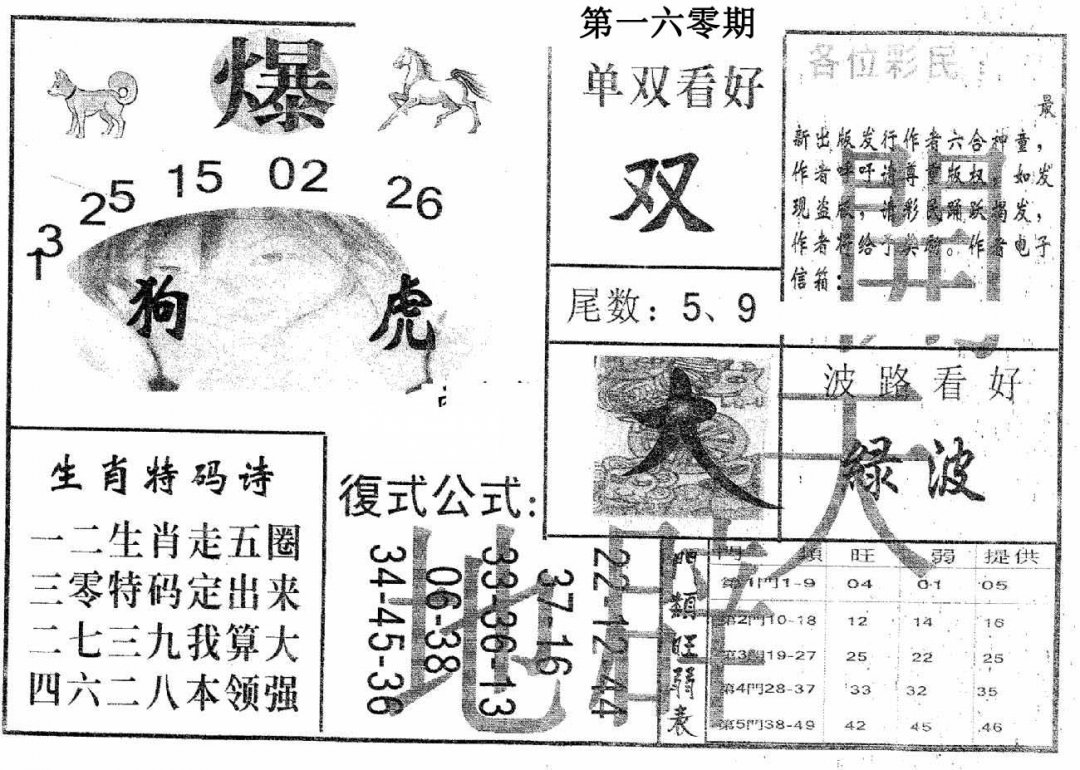 第一六零期
爆
13
25
15
02
26
狗
虎
单双看好
双
尾数：5、9
大
各位彩民：
最
新出版发行作者六合神童，
作者呼吁请尊重版权，如发
现盗版，请彩民踊跃揭发，
作者将给予奖励。作者电子
信箱：
波路看好
緑波
生肖特码诗
一二生肖走五圈
三零特码定出来
二七三九我算大
四六二八本领强
復式公式：
34-45-36
06-38
33-36-13
37-16
22-12-44
門類旺弱表
門 類 旺 弱 提供
第1門1-9 04 01 05
第2門10-18 12 14 16
第3門19-27 25 22 25
第4門28-37 33 32 35
第5門38-49 42 45 46
天
地